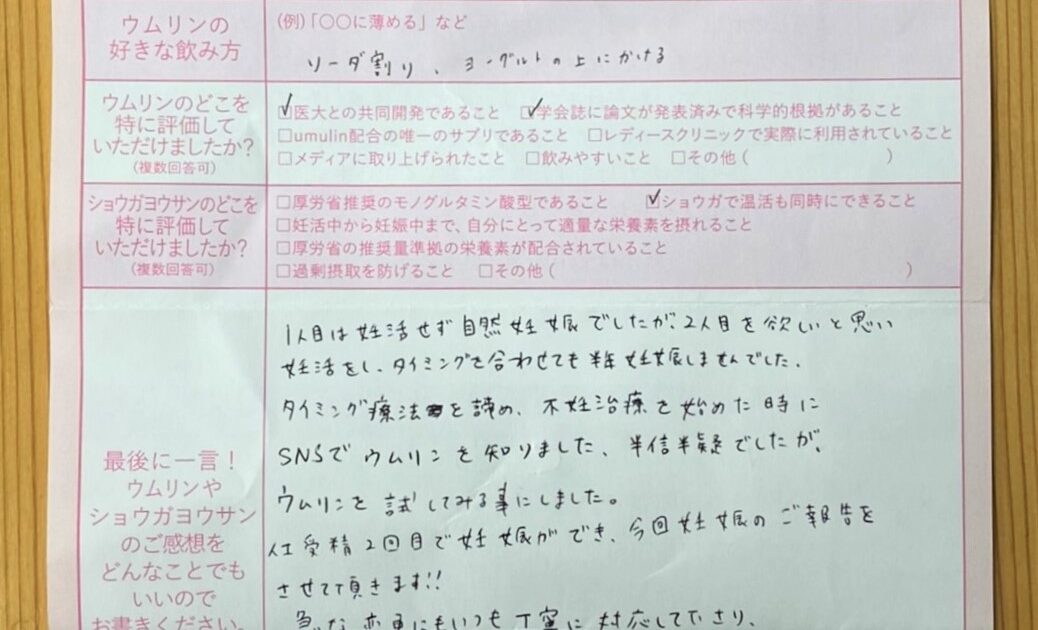 ウムリンの
好きな飲み方
(例)「〇〇に薄める」など
ソーダ割り、ヨーグルトの上にかける
ウムリンのどこを
特に評価して
いただけましたか?
(複数回答可)
☑医大との共同開発であること ☑学会誌に論文が発表済みで科学的根拠があること
□umulin配合の唯一のサプリであること □レディースクリニックで実際に利用されていること
□メディアに取り上げられたこと □飲みやすいこと □その他( )
ショウガヨウサンのどこを
特に評価して
いただけましたか?
(複数回答可)
□厚労省推奨のモノグルタミン酸型であること ☑ショウガで温活も同時にできること
□妊活中から妊娠中まで、自分にとって適量な栄養素を摂れること
□厚労省の推奨量準拠の栄養素が配合されていること
□過剰摂取を防げること □その他( )
最後に一言!
ウムリンや
ショウガヨウサン
のご感想を
どんなことでも
いいので
お書きください。
1人目は妊活せず自然妊娠でしたが、2人目を欲しいと思い
妊活をし、タイミングを合わせても半年妊娠しませんでした。
タイミング療法を諦め、不妊治療を始めた時に
SNSでウムリンを知りました、半信半疑でしたが、
ウムリンを試してみる事にしました。
人工受精2回目で妊娠ができ、今回妊娠のご報告を
させて頂きます!!
急な変更にもいつも丁寧に対応して下さり、